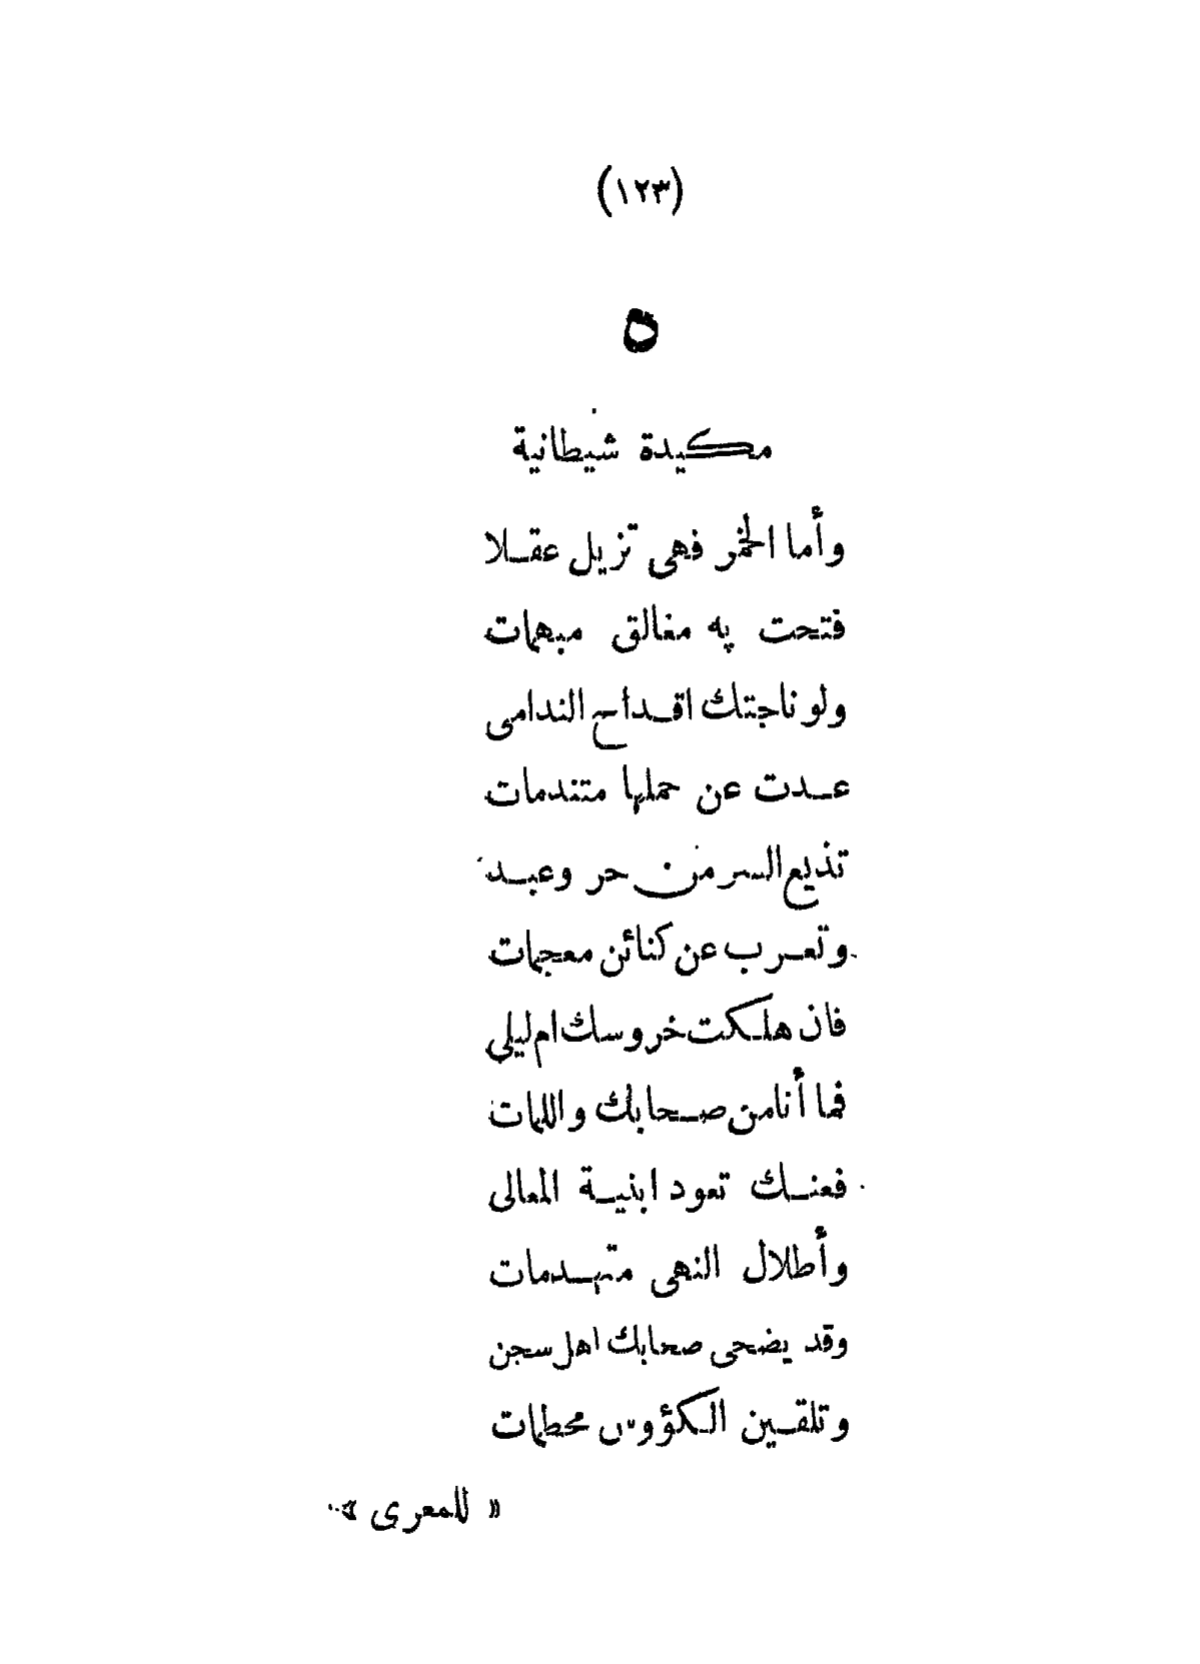 (١٢٣)
٥
مكيدة شيطانية
وأما الخمر فهى تزيل عقلا
فتحت به مغالق مبهمات
ولو ناجتك اقداح الندامى
عدت عن حملها متندمات
تذيع السر من حر وعبد
وتعرب عن كنائن معجمات
فان هلكت خروسك ام ليلى
فما أنا من صحابك واللمات
فعنك تعود ابنية المعالى
وأطلال النهى متهدمات
وقد يضحى صحابك اهل سجن
وتلقين الكؤوس محطمات
« للمعرى »